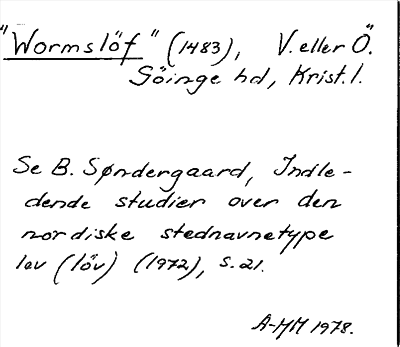 "Wormslöf" (1483), V. eller Ö.
Göinge hd, Krist. l.
Se B. Søndergaard, Indle-
dende studier over den
nordiske stednavnetype
lev (löv) (1972), s. 21.
A-MM 1978.